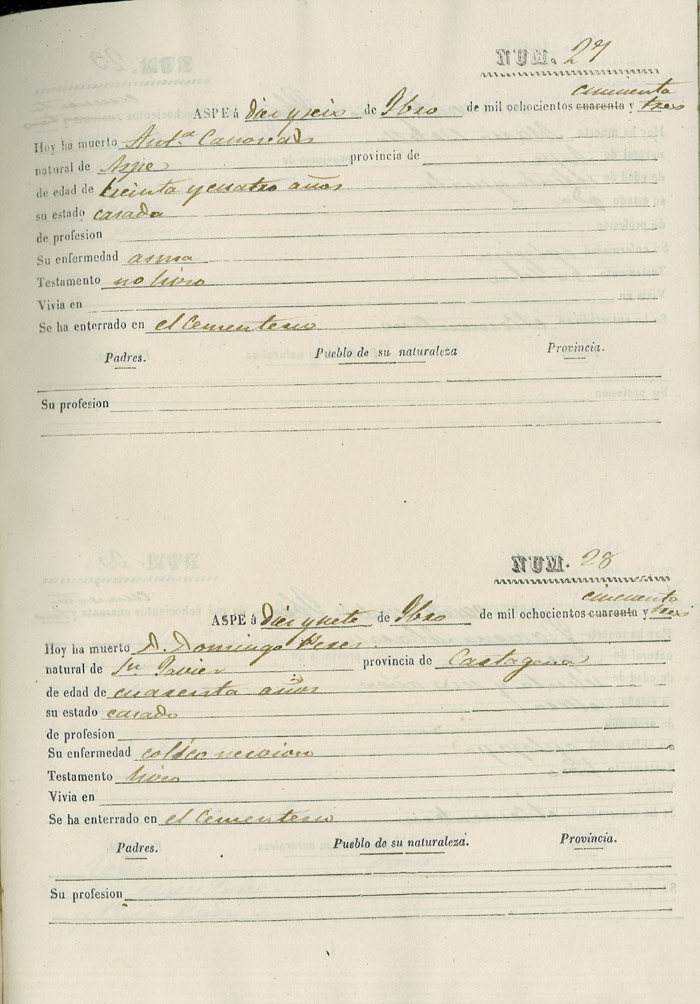 NUM. 27
cincuenta
ASPE á diez y seis de 9bre de mil ochocientos cuarenta y tres
Hoy ha muerto Ant.ª
natural de Aspe provincia de
de edad de treinta y cuatro años
su estado casada
de profesion
Su enfermedad asma
Testamento no hizo
Vivia en
Se ha enterrado en el Cementerio
Padres. Pueblo de su naturaleza Provincia.
Su profesion
NUM. 28
cincuenta
ASPE á diez y siete de 9bre de mil ochocientos cuarenta y tres
Hoy ha muerto D. Domingo Perez
natural de Sn. Javier provincia de Cartagena
de edad de cuarenta años
su estado casado
de profesion
Su enfermedad colico nervioso
Testamento hizo
Vivia en
Se ha enterrado en el Cementerio
Padres. Pueblo de su naturaleza. Provincia.
Su profesion